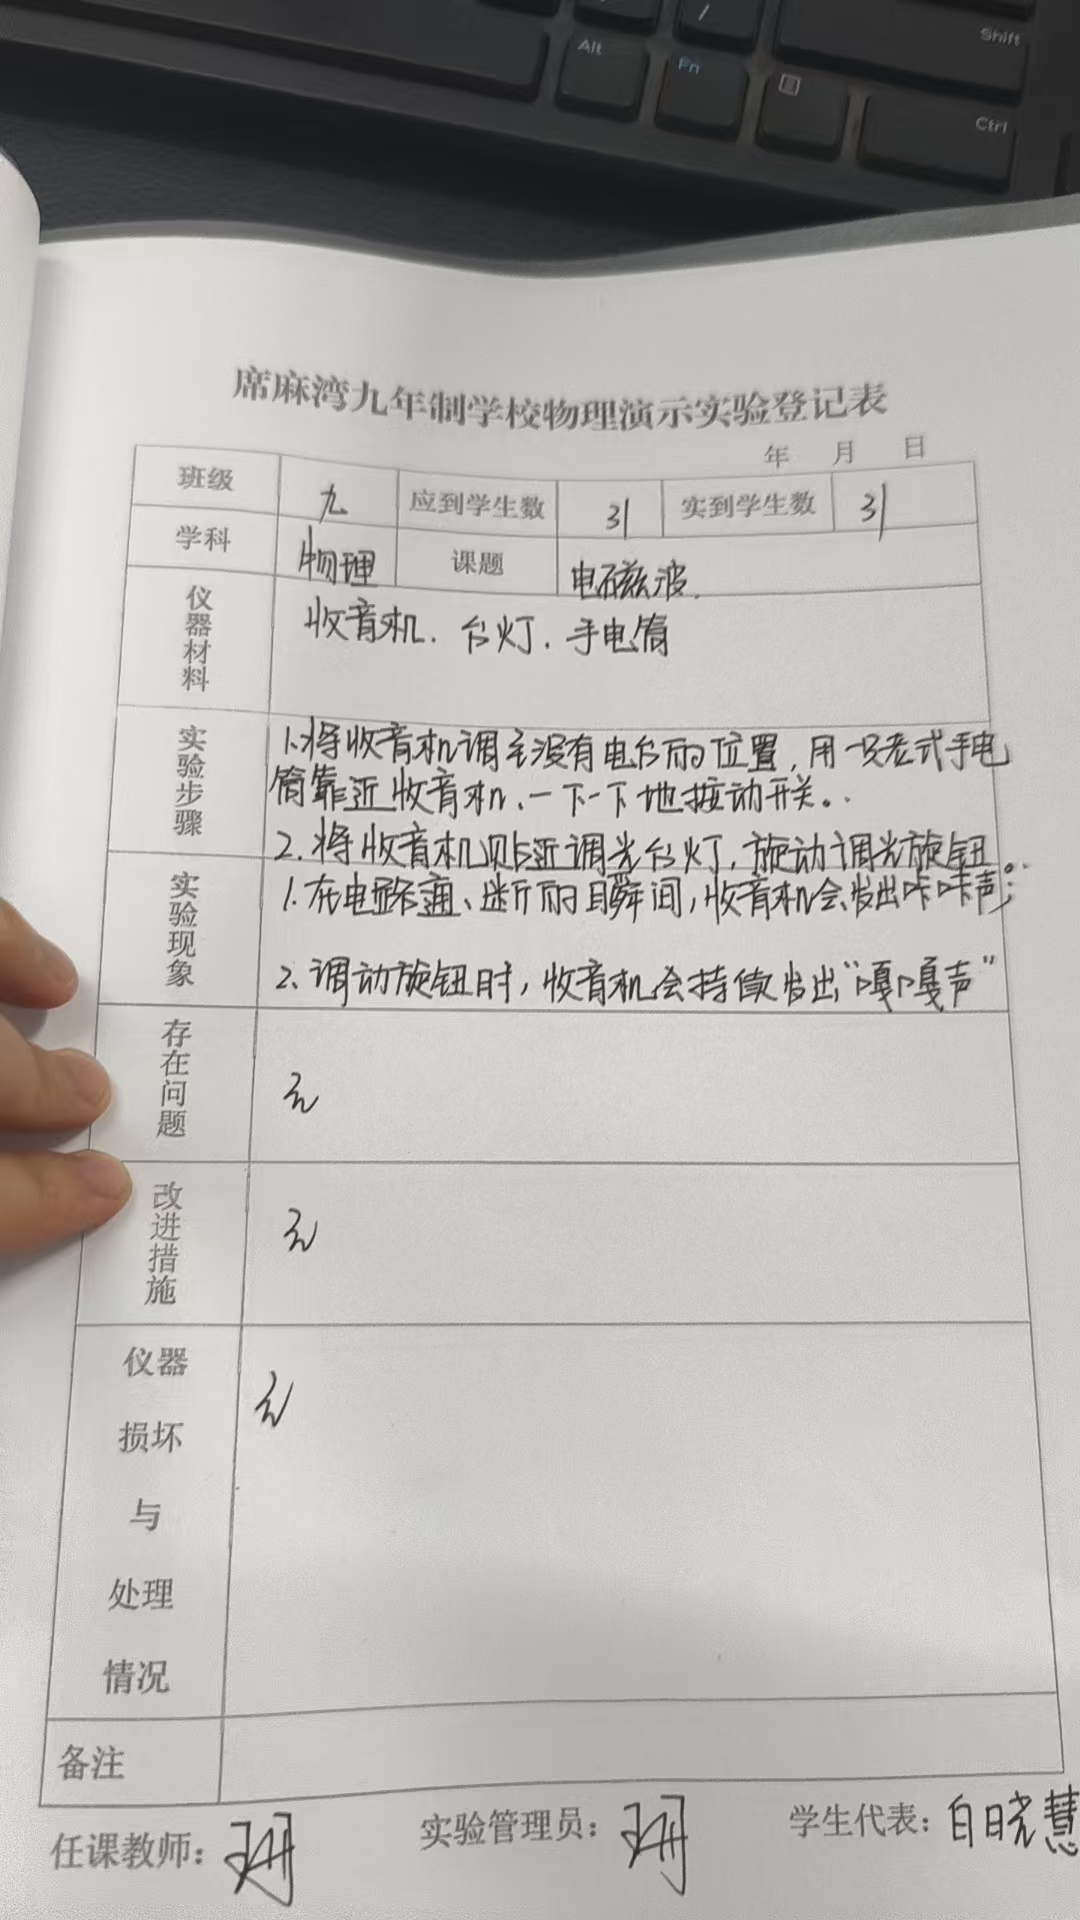 Alt
Fn
Shift
Ctrl
席麻湾九年制学校物理演示实验登记表
年 月 日
班级 九 应到学生数 31 实到学生数 31
学科 物理 课题 电磁波.
仪器材料 收音机、台灯、手电筒
实验步骤 1.将收音机调至没有电台的位置,用一只老式手电
筒靠近收音机、一下一下地按动开关。
2.将收音机贴近调光台灯,旋动调光旋钮。
实验现象 1.在电路通、断的瞬间,收音机会发出咔咔声;
2.调动旋钮时,收音机会持续发出“嘎嘎声”
存在问题 无
改进措施 无
仪器损坏与处理情况 无
备注
任课教师: 实验管理员: 学生代表:白晓慧